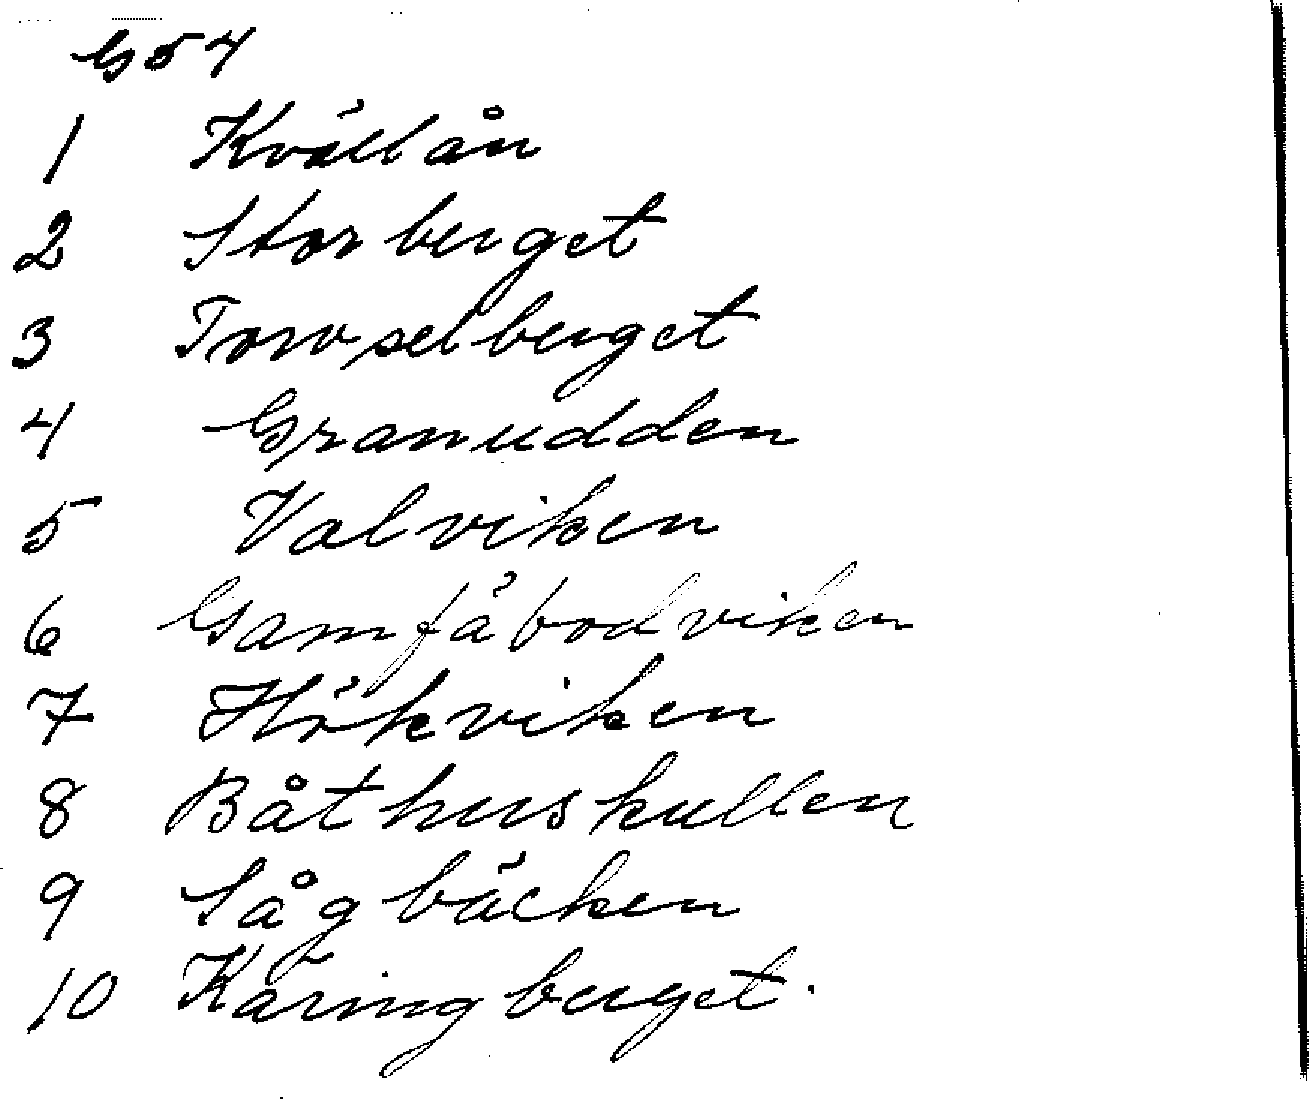 G54
1 Kvällån
2 Storberget
3 Torvselberget
4 Granudden
5 Valviken
6 Gamfäbodviken
7 Hökviken
8 Båthuskullen
9 Sågbäcken
10 Käringberget.